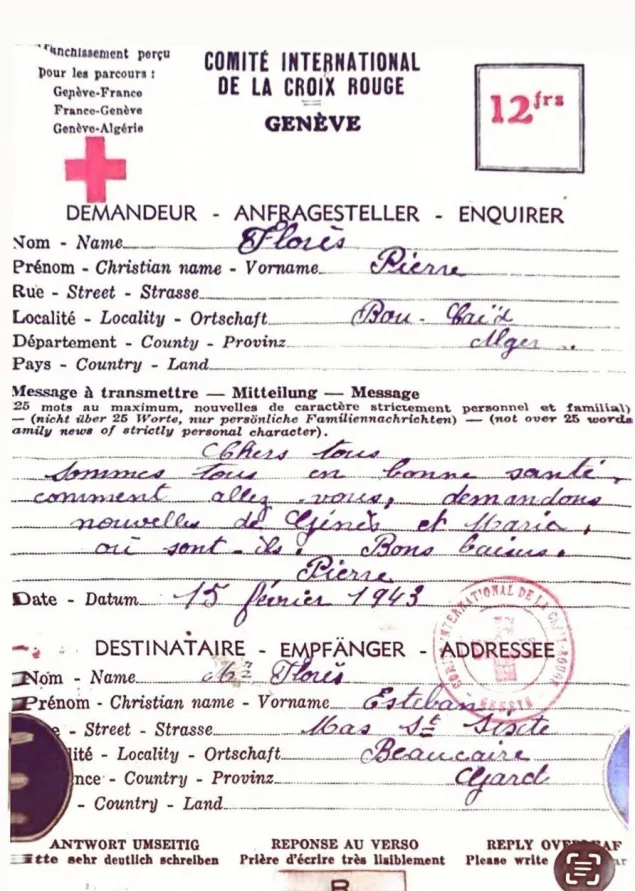 franchissement perçu
pour les parcours :
Genève-France
France-Genève
Genève-Algérie
COMITÉ INTERNATIONAL
DE LA CROIX ROUGE
GENÈVE
12 frs
DEMANDEUR - ANFRAGESTELLER - ENQUIRER
Nom - Name Florès
Prénom - Christian name - Vorname Pierre
Rue - Street - Strasse
Localité - Locality - Ortschaft Bou-Caïd
Département - County - Provinz Alger
Pays - Country - Land
Message à transmettre — Mitteilung — Message
25 mots au maximum, nouvelles de caractère strictement personnel et familial)
— (nicht über 25 Worte, nur persönliche Familiennachrichten) — (not over 25 words
amily news of strictly personal character).
Chers tous
sommes tous en bonne santé,
comment allez vous, demandons
nouvelles de Ginès et Maria,
où sont-ils. Bons baisers.
Pierre
Date - Datum 15 février 1943
COMITÉ INTERNATIONAL DE LA CROIX-ROUGE
GENÈVE
DESTINATAIRE - EMPFÄNGER - ADDRESSEE
Nom - Name Mr Florès
Prénom - Christian name - Vorname Esteban
e - Street - Strasse Mas St Sixte
lité - Locality - Ortschaft Beaucaire
nce - Country - Provinz Gard
- Country - Land
ANTWORT UMSEITIG REPONSE AU VERSO REPLY OVERLEAF
itte sehr deutlich schreiben Prière d'écrire très lisiblement Please write